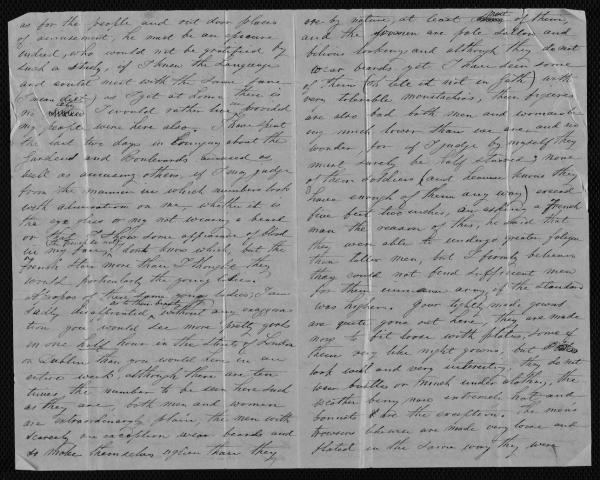 as for the people and out door places
of amusement, he must be an
indeed, who would not be gratified by
such a study, if I knew the Language
and could meet with the same fare
I mean diet) as I get at home there is
no I would rather live in provided
my people were here also. I have spent
the last two days in lounging about the
Gardens and Boulevards amused as
well as amusing others, if I may judge
from the manner in which numbers look
with admiration on me, whether it is
the eye glass or my not wearing a beard
or that I show some appearance of blood
in my face, I don't know which, but the
French stare more than I thought they
would particularly the young ladies.
Apropos of these same young ladies, I am
sadly disappointed as to their beauty for without any exaggera
tion you would see more pretty girls
in one half hour in the streets of London
or Dublin than you would here in an
entire week, although there are ten
times the number to be seen here such
as they are, both men and women
are extraordinarily plain, the men with
scarcely an exception wear beards and
to make themselves uglier than they
are by nature, at least most of them,
and the women are pale sallow and
bilious looking and although they do not
wear beards yet I have seen some
of them (to tell it not in Gath) with
very tolerable moustachios, their figures
are also bad both men and womankind
my much lower than we are and no
wonder for if I judge by myself they
must surely be half starved, none
of their soldiers (and dear knows they
have enough of them any way) exceed
five feet two inches, on asking a French
man the reason of this, he said that
they were able to undergo greater fatigue
than taller men, but I firmly believe
they could not find sufficient men
for their immense army if the standard
was higher. Your tightly made gowns
are quite gone out here, they are made
now to fit loose with plaits, some of
them very like night gowns, but
look well and very interesting, they do not
wear bustles or much under clothes, the
weather being now extremely hot, and
bonnets are the exception. The mens
trowsers likewise are made very loose and
plaited in the same way they were